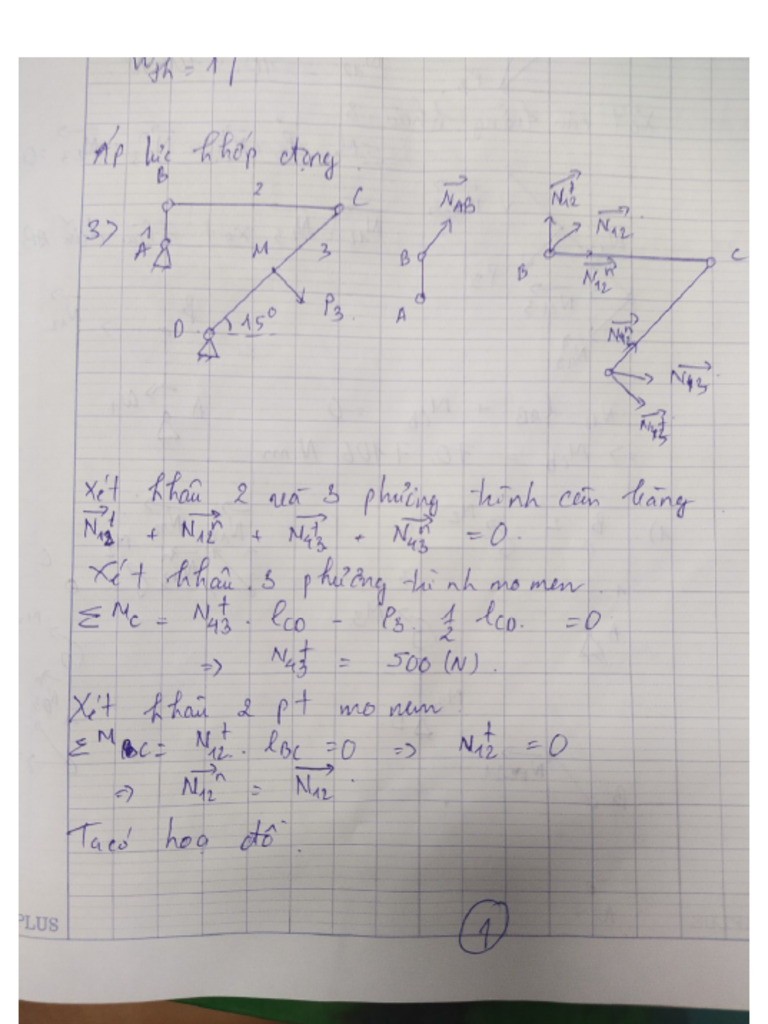 Áp lực khớp động
B
2
C
3>
A
1
M
3
P₃
D
15°
N_AB
B
A
N₁₂ᵗ
N₁₂
B
N₁₂ⁿ
C
N₄₃
Xét khâu 2 và 3 phương trình cân bằng
N₁₂ᵗ + N₁₂ⁿ + N₄₃ᵗ + N₄₃ⁿ = 0.
Xét khâu 3 phương trình momen
Σ M_C = N₄₃ᵗ . l_CD - P₃ . 1/2 l_CD. = 0
=> N₄₃ᵗ = 500 (N).
Xét khâu 2 pt mo men
Σ M_BC = N₁₂ᵗ . l_BC = 0 => N₁₂ᵗ = 0
=> N₁₂ⁿ = N₁₂.
Ta có hoạ đồ.
1
PLUS